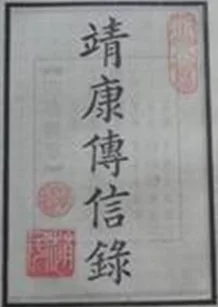 靖康傳信錄